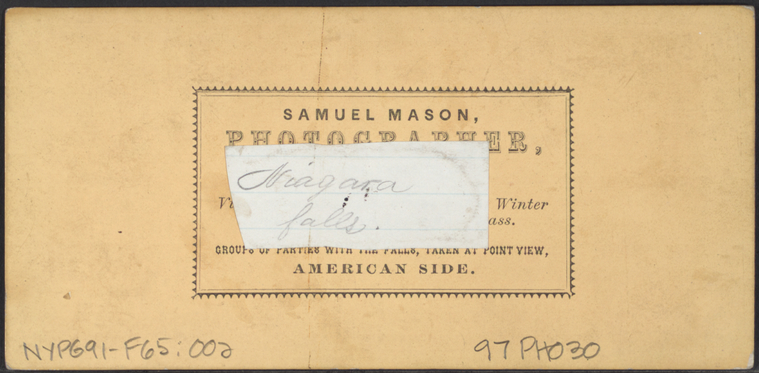 SAMUEL MASON,
PHOTOGRAPHER,
Niagara
Winter
falls.
ass.
GROUPS OF PARTIES WITH THE FALLS, TAKEN AT POINT VIEW,
AMERICAN SIDE.
NYPG91-F65:002
97PH030